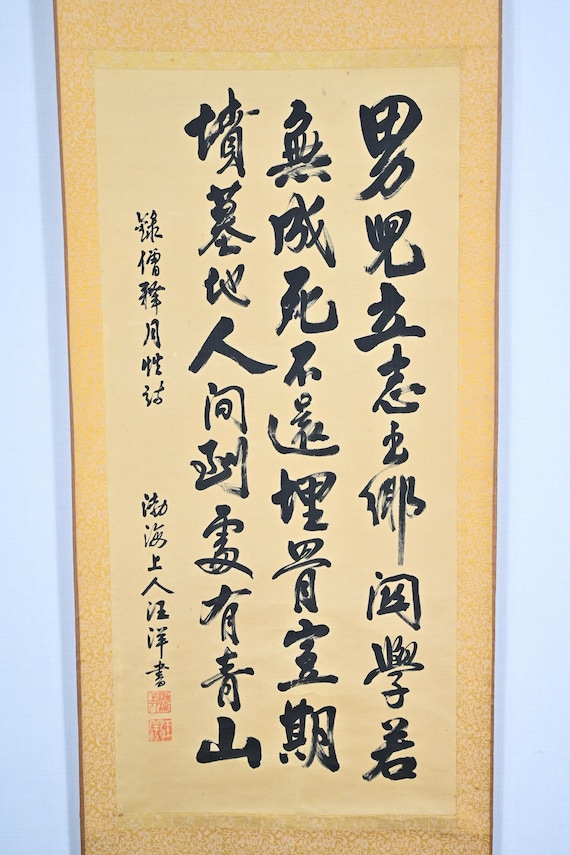 男兒立志出鄉關學若
無成死不還埋骨豈期
墳墓地人間到處有青山
錄僧釋月性詩
渤海上人汪洋書